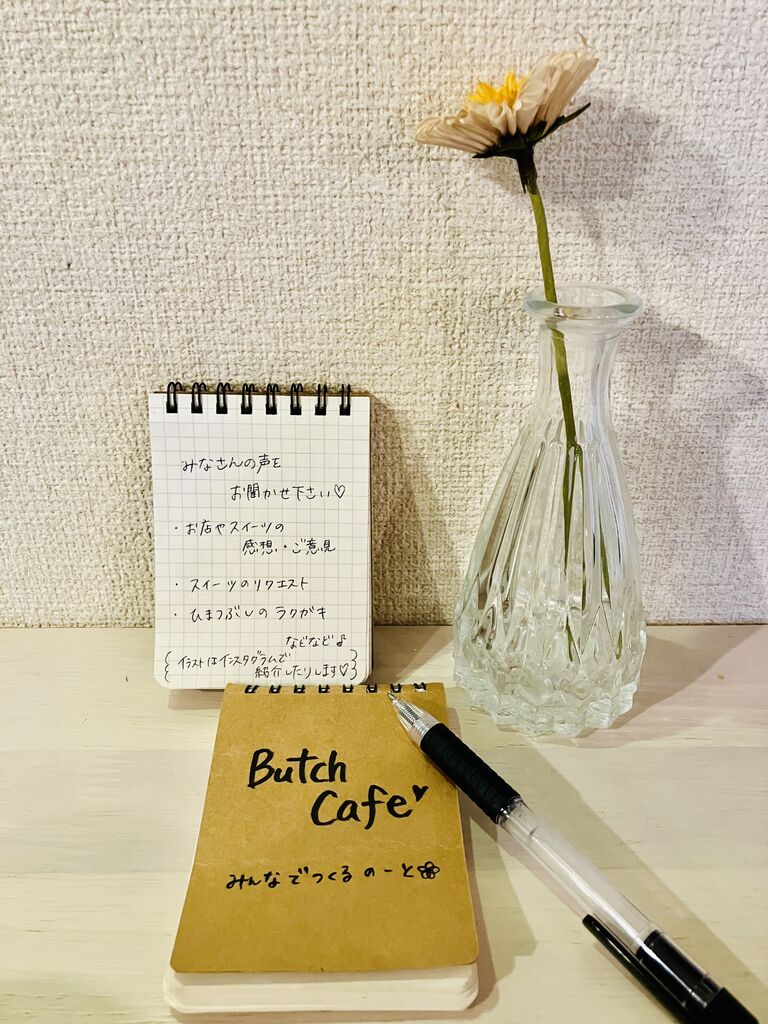 みなさんの声を
お聞かせ下さい♡
・お店やスイーツの
感想・ご意見
・スイーツのリクエスト
・ひまつぶしのラクガキ
などなど♪
{イラストはインスタグラムで
紹介したりします♡}
Butch
Cafe♥
みんなでつくるのーと